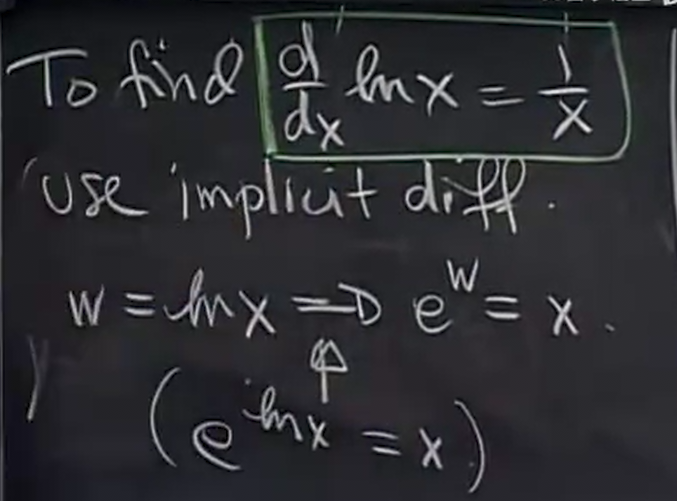 To find d/dx ln x = 1/x
use implicit diff.
w = ln x ⇒ e^w = x.
↑
(e^{ln x} = x)